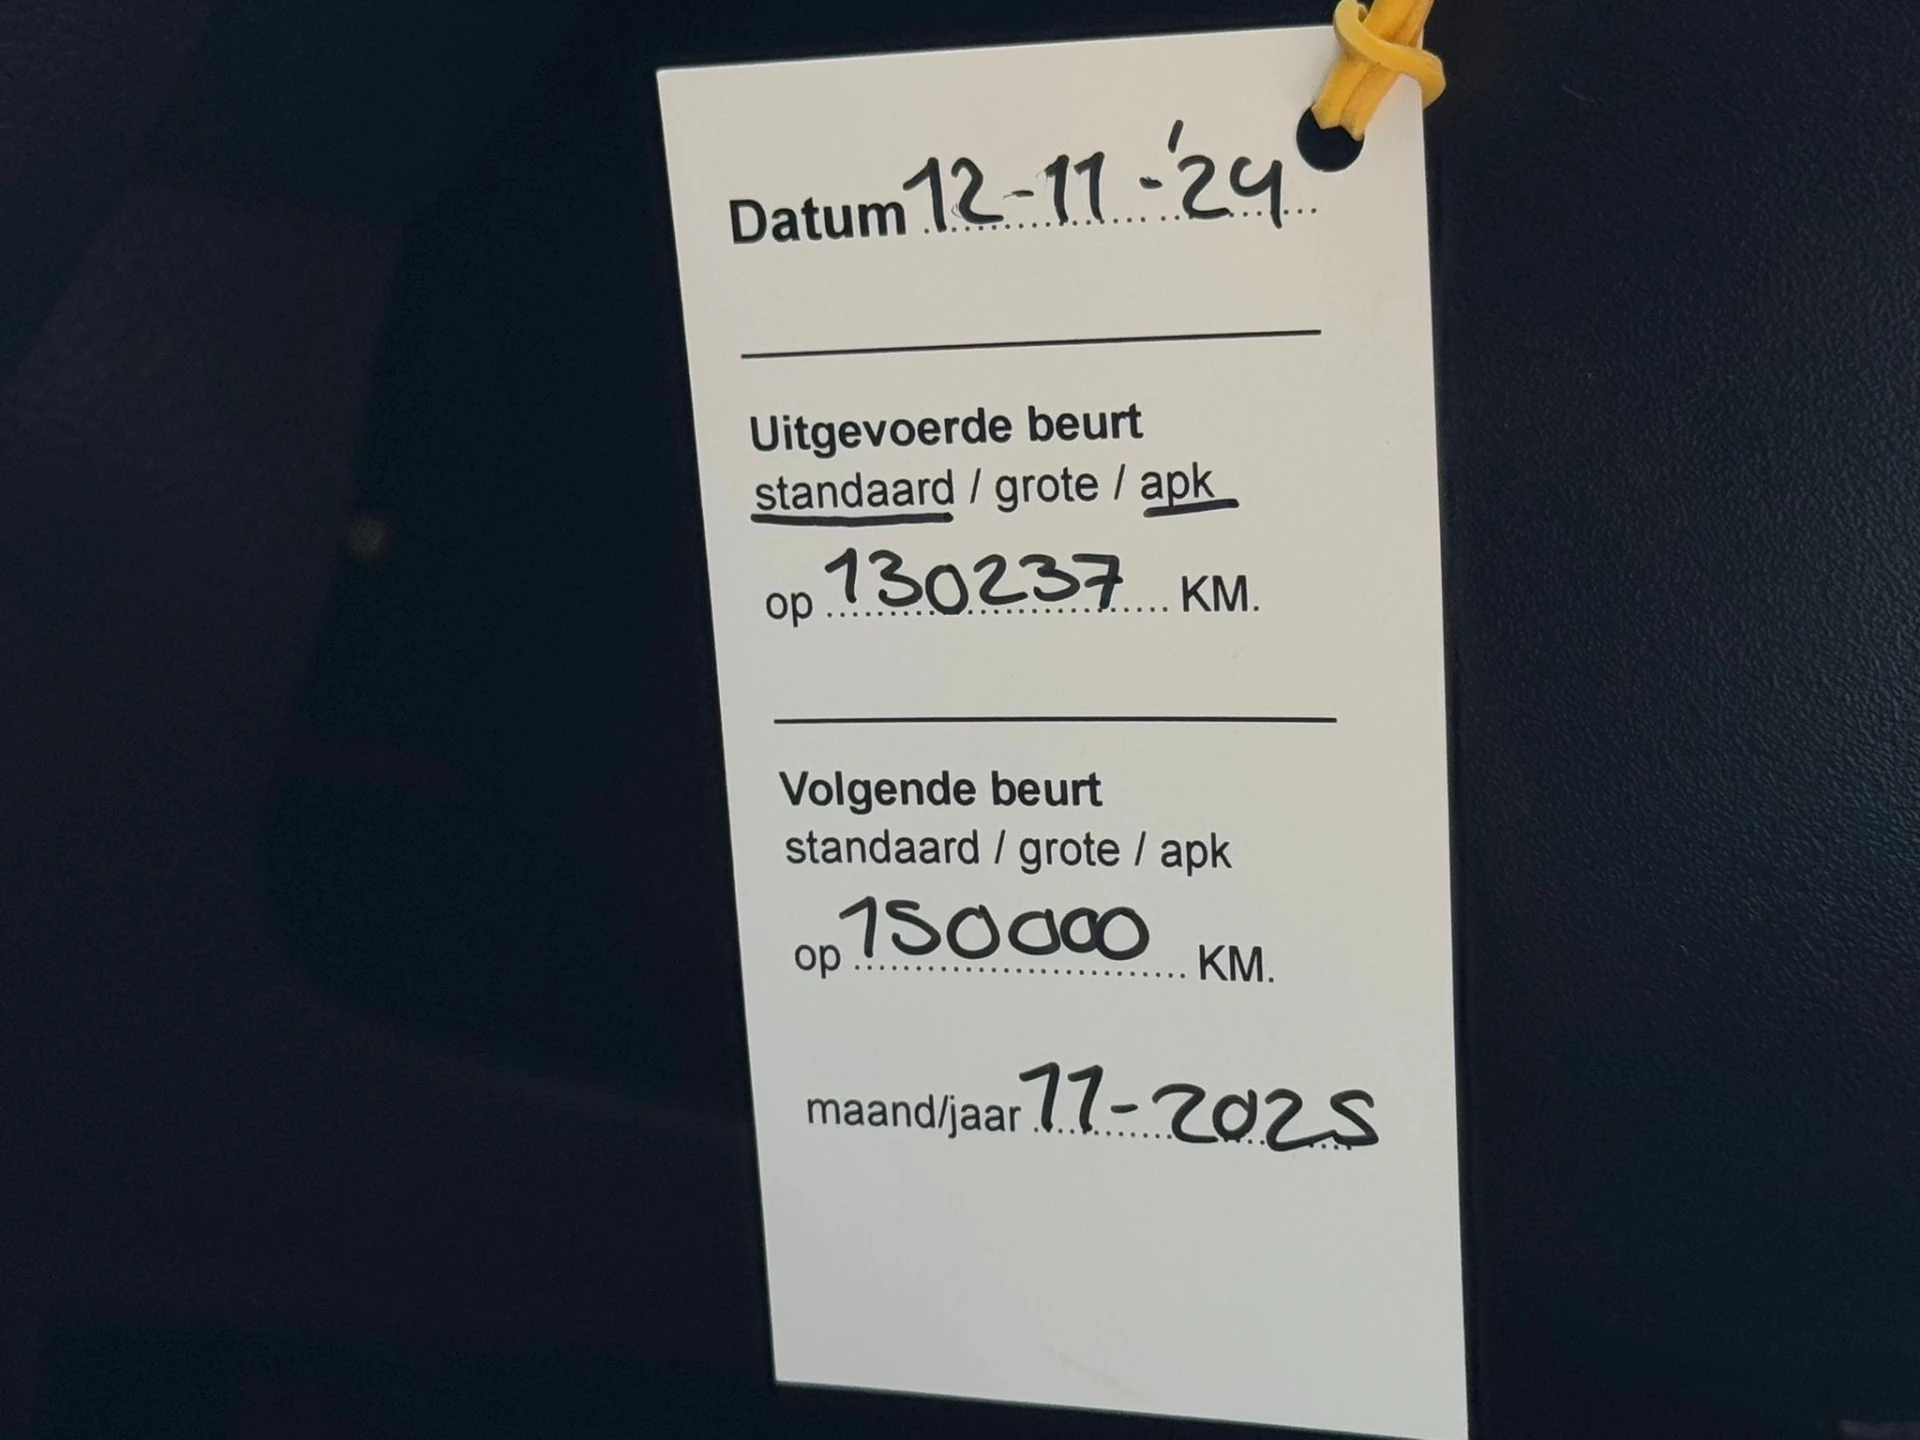 Datum 12-11-'24
Uitgevoerde beurt
standaard / grote / apk
op 130237 KM.
Volgende beurt
standaard / grote / apk
op 150000 KM.
maand/jaar 11-2025